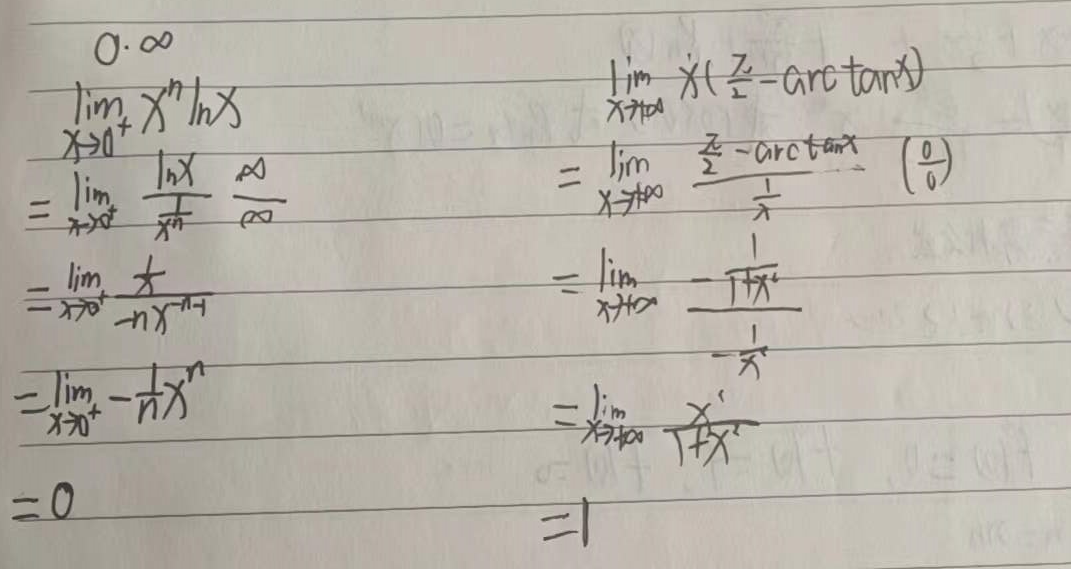 0·∞
lim x→0⁺ xⁿ lnx
= lim x→0⁺ lnx / (1/xⁿ) ∞/∞
= lim x→0⁺ (1/x) / (-nx⁻ⁿ⁻¹)
= lim x→0⁺ -(1/n)xⁿ
= 0
lim x→+∞ x(π/2 - arctanx)
= lim x→+∞ (π/2 - arctanx) / (1/x) (0/0)
= lim x→+∞ (-1/(1+x²)) / (-1/x²)
= lim x→+∞ x²/(1+x²)
= 1